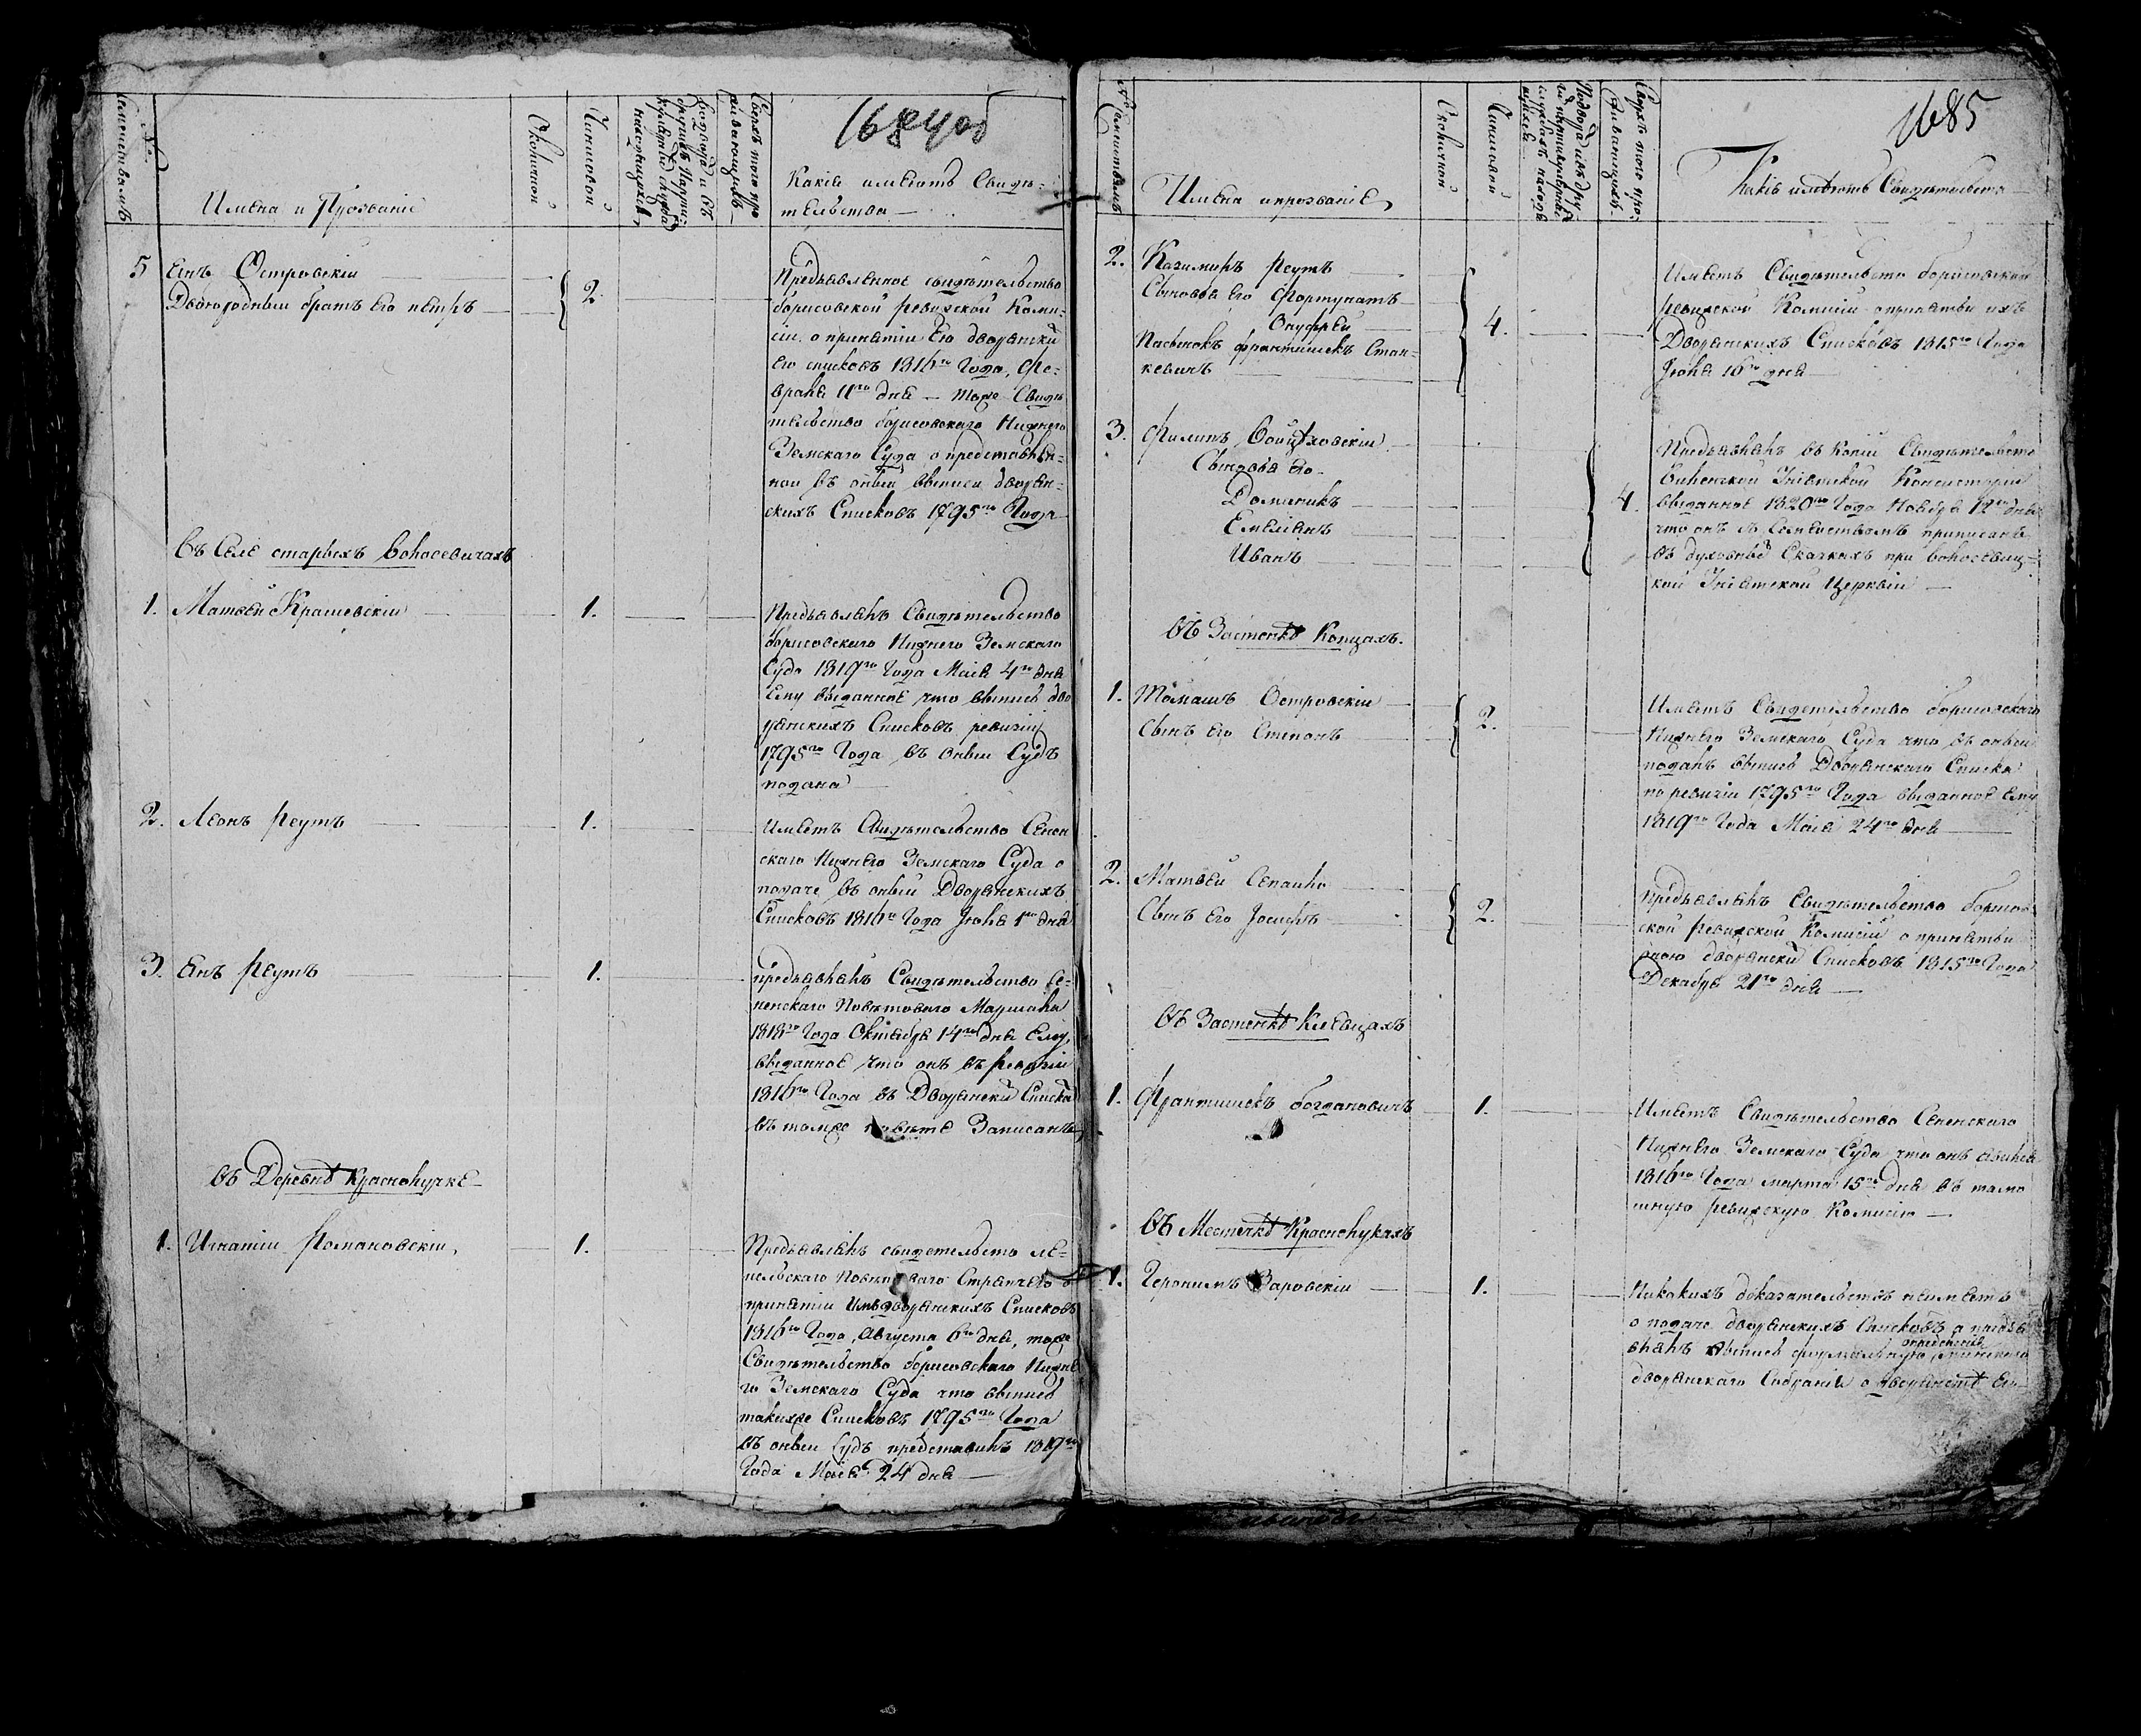 1684 об
№ Семействамъ
Имена и Прозваніе
Окотной
Чиншовой
Сверхъ того про
живающихъ
Какіе имеютъ Свиде-
тельства
5 Янъ Островскій
Двоюродный братъ его петръ
2.
Предъявленное свидѣтельство
борисовской ревизской Коми-
сіи о принятіи Ею дворянски
Его списковъ 1816го Года, Фе-
враля 11го дня — также Свидѣ
тельство борисовскаго Нижнего
Земскаго Суда о представлен-
ной въ оный выписи дворян-
скихъ Списковъ 1795го Года
въ Селе старыхъ волосевичахъ
1. Матвей Крашевскій
1.
Предъявилъ Свидѣтельство
борисовскаго Нижнего Земскаго
Суда 1819го Года Маія 4го дня
Ему выданное что выпись дво
рянскихъ Списковъ ревизіи
1795го Года въ оный Судъ
подана
2. Леонъ Реутъ
1.
Имеетъ Свидѣтельство Сенен
скаго Нижнего Земскаго Суда о
подаче въ оный Дворянскихъ
Списковъ 1816го Года Іюня 1го дня
3. Янъ Реутъ
1.
предъявилъ Свидѣтельство Се-
ненскаго Повѣтоваго Маршала
1818го Года Октября 14го дня Ему
выданное что онъ въ Ревизіи
1816го Года въ Дворянски Списки
въ томже повѣте Записанъ
въ Деревнѣ Краснолучке
1. Игнатій Романовскій
1.
Предъявилъ свидетельсто ле-
пельскаго Повѣтоваго Стряпчего о
принятіи Имъ дворянскихъ Списковъ
1816го Года, Августа 6го дня, также
Свидѣтельство борисовскаго Нижне
го Земскаго Суда что выпись
такихже Списковъ 1795го Года
въ оный Судъ представилъ 1819го
Года Маія 24 дня
1685
№ Семействамъ
Имена ипрозваніе
Окотной
Чиншовой
Сверхъ того про-
живающихъ
Какіе имѣютъ Свидѣтельства
2. Казимиръ Реутъ
Сыновья Его Фортунатъ
Онуфрей
Пасынокъ францишекъ Стан-
кевичъ
4.
Имеетъ Свидѣтельсто борисовской
ревизской Комисіи опринятіи ихъ
Дворянскихъ Списковъ 1815го Года
Іюня 16го дня
3. Филипъ Войцѣховскій
Сыновья Его
Доминикъ
Емельянъ
Иванъ
4.
Предъявилъ въ Копіи Свидѣтельсто
виленской Уніятской Консисторіи
выданное 1820го Года Ноября 12го дня
что онъ съ Семействомъ приписанъ
въ духовныя Сказкахъ при волосевиц-
кой Уніятской Церквіи
въ Застенкѣ Копцахъ.
1. Томашъ Островскій
Сынъ Его Степанъ
2.
Имеетъ Свидетельство борисовскаго
Нижнего Земскаго Суда что въ оный
подалъ выпись Дворянскаго Списка
по ревизіи 1795го Года выданное Ему
1819го Года Маія 24го дня
2. Матвей Сепайло
Сынъ Его Іосифъ
2.
предъявилъ Свидѣтельство борисов-
ской ревизской Комисіи о принятіи
оною дворянски Списковъ 1815го Года
Декабря 21го дня
въ Застенкѣ Клевцахъ
1. Францишекъ богдановичъ
1.
Имеетъ Свидѣтельство Сененскаго
Нижнего Земскаго Суда что онъ явился
1816го Года марта 15го дня въ тамо
шную ревизскую Комисію
въ Местечкѣ Краснолукахъ
1. Геронимъ Заровскій
1.
Никакихъ доказательствъ неимеетъ
о подаче дворянскихъ Списковъ а предъя
вилъ выпись формальную опыделенія минскаго
дворянскаго Собранія о дворянстве Его